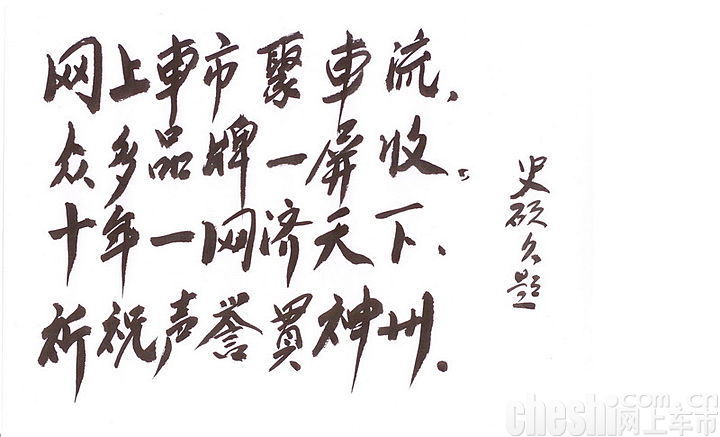 网上车市聚车流，
众多品牌一屏收。
十年一网济天下、
祈祝声誉贯神州。
史硕久题
cheshi.com.cn
网上车市